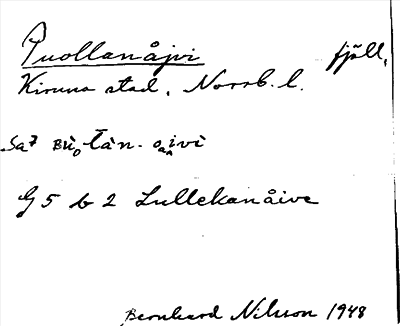 Puollanåjvi fjäll,
Kiruna stad, Norrb. l.
G 5 b 2 Lullekanåive
Bernhard Nilsson 1948